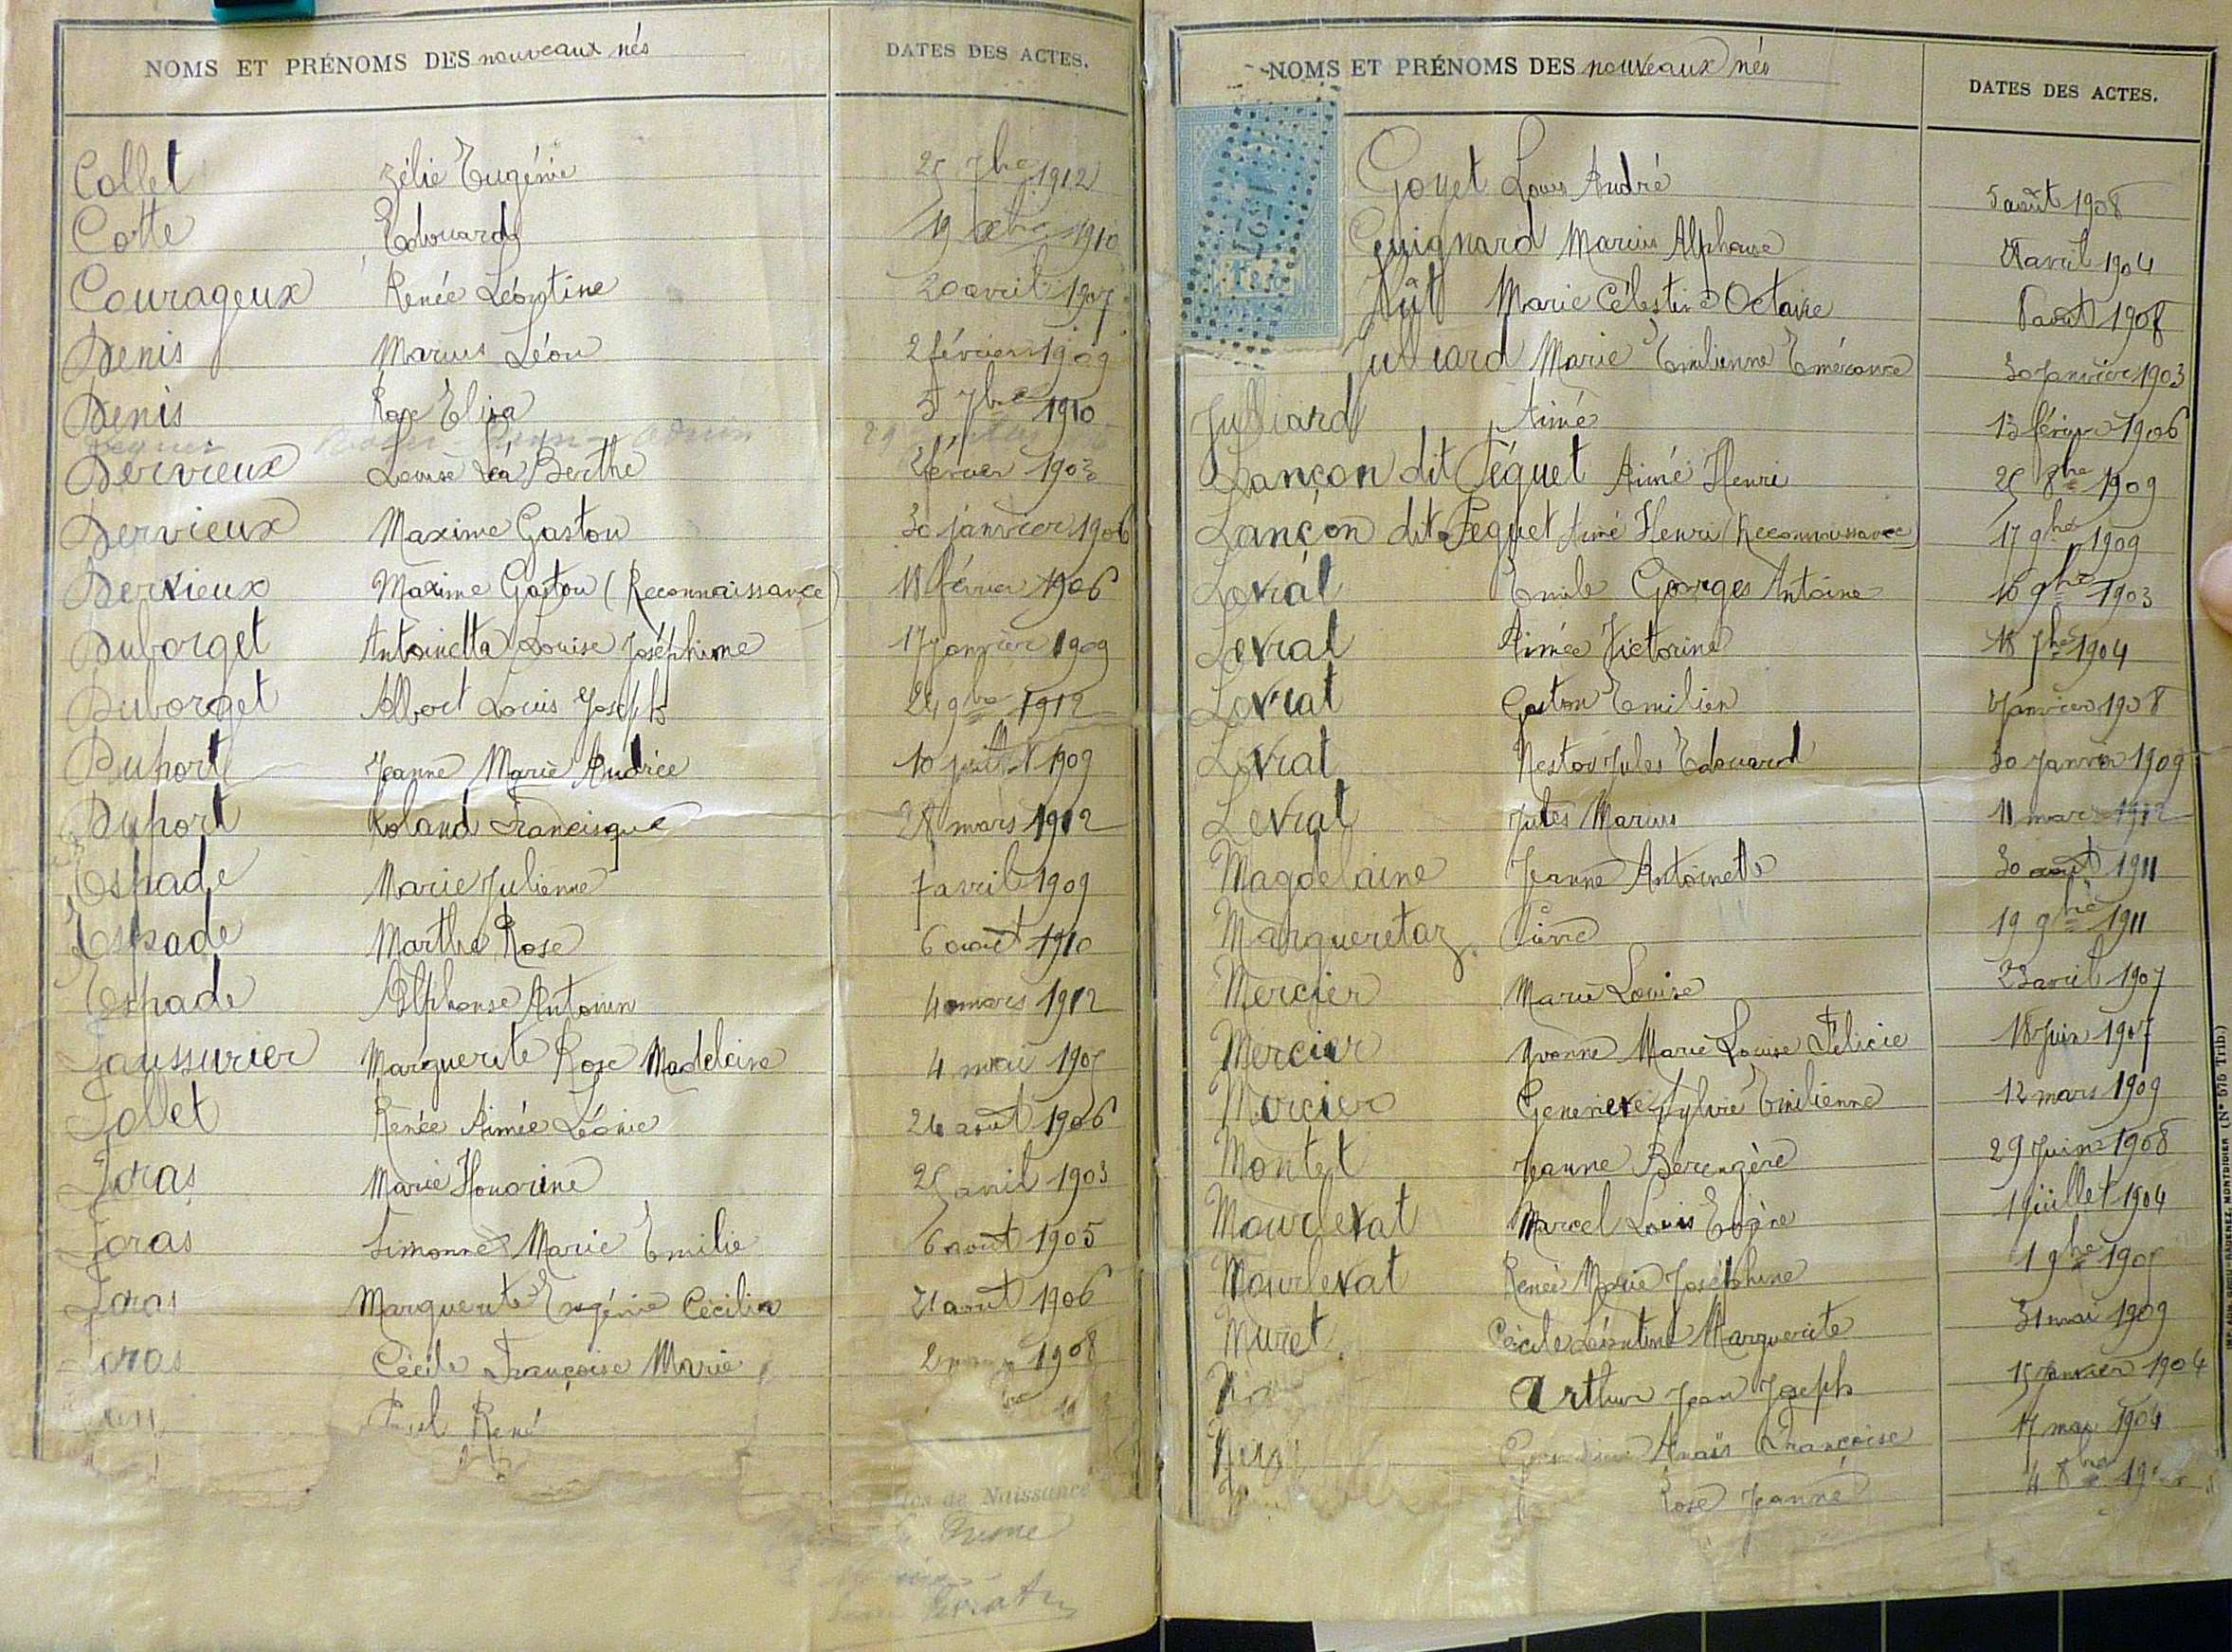 NOMS ET PRÉNOMS DES nouveaux nés DATES DES ACTES.
Collet Zélie Eugénie 25 7bre 1912
Cotte Edouard 19 Xbre 1910
Courageux Renée Léontine 20 avril 1907
Denis Marius Léon 2 février 1909
Denis Rose Elisa 5 7bre 1910
Dervieux Louise Léa Berthe février 1903
Dervieux Maxime Gaston 30 janvier 1906
Dervieux Maxime Gaston (Reconnaissance) 18 février 1906
Duborget Antoinetta Louise Joséphine 17 janvier 1909
Duborget Albert Louis Joseph 24 9bre 1912
Duport Jeanne Marie Andrée 10 juillet 1909
Duport Roland Francisque 28 mars 1912
Espade Marie Julienne 7 avril 1909
Espade Marthe Rose 6 août 1910
Espade Alphonse Antonin 4 mars 1912
Faussurier Marguerite Rose Madeleine 4 mai 1905
Follet Renée Aimée Léonie 26 août 1906
Foras Marie Honorine 25 avril 1903
Foras Simonne Marie Emilie 6 août 1905
Foras Marguerite Eugénie Cécilia 21 août 1906
Foras Cécile Françoise Marie 2 1908
René
de Naissance
NOMS ET PRÉNOMS DES nouveaux nés DATES DES ACTES.
Goyet Louis André 5 août 1908
Guignard Marius Alphonse avril 1904
Hût Marie Célestine Octavie août 1908
Julliard Marie Emilienne Emérance 30 Janvier 1903
Julliard Aimé 13 février 1906
Lançon dit Péquet Aimé Henri 25 8bre 1909
Lançon dit Péquet Aimé Henri (Reconnaissance) 17 9bre 1909
Levrat Emile Georges Antoine 16 9bre 1903
Levrat Aimée Victorine 18 7bre 1904
Levrat Gaston Emilien Janvier 1908
Levrat Nestor Jules Edouard 30 Janvier 1909
Levrat Jules Marius 11 mars 1912
Magdelaine Jeanne Antoinette 30 août 1911
Margueretaz Pierre 19 9bre 1911
Mercier Marie Louise 23 avril 1907
Mercier Yvonne Marie Louise Félicie 18 Juin 1907
Mercier Geneviève Sylvie Emilienne 12 mars 1909
Montet Jeanne Berengère 29 Juin 1908
Mourlevat Marcel Louis Eugène 1 juillet 1904
Mourlevat Renée Marie Joséphine 1 9bre 1905
Muret Cécile Léontine Marguerite 31 mai 1909
Arthur Jean Joseph 15 janvier 1904
Anaïs Françoise 17 mai 1904
Rose Jeanne 4 8bre